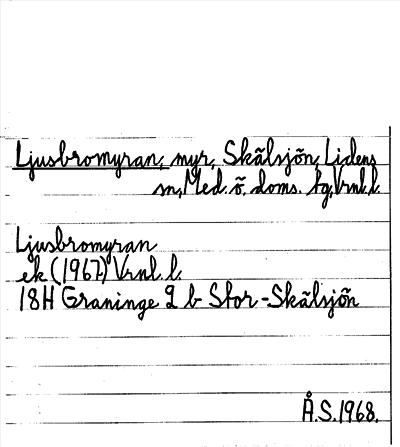 Ljusbromyran, myr, Skälsjön, Lidens
sn, Med. ö. doms. fg, Vrnl. l.
Ljusbromyran
ek (1967) Vrnl. l.
18H Graninge 9 b Stor-Skälsjön
Å.S. 1968.